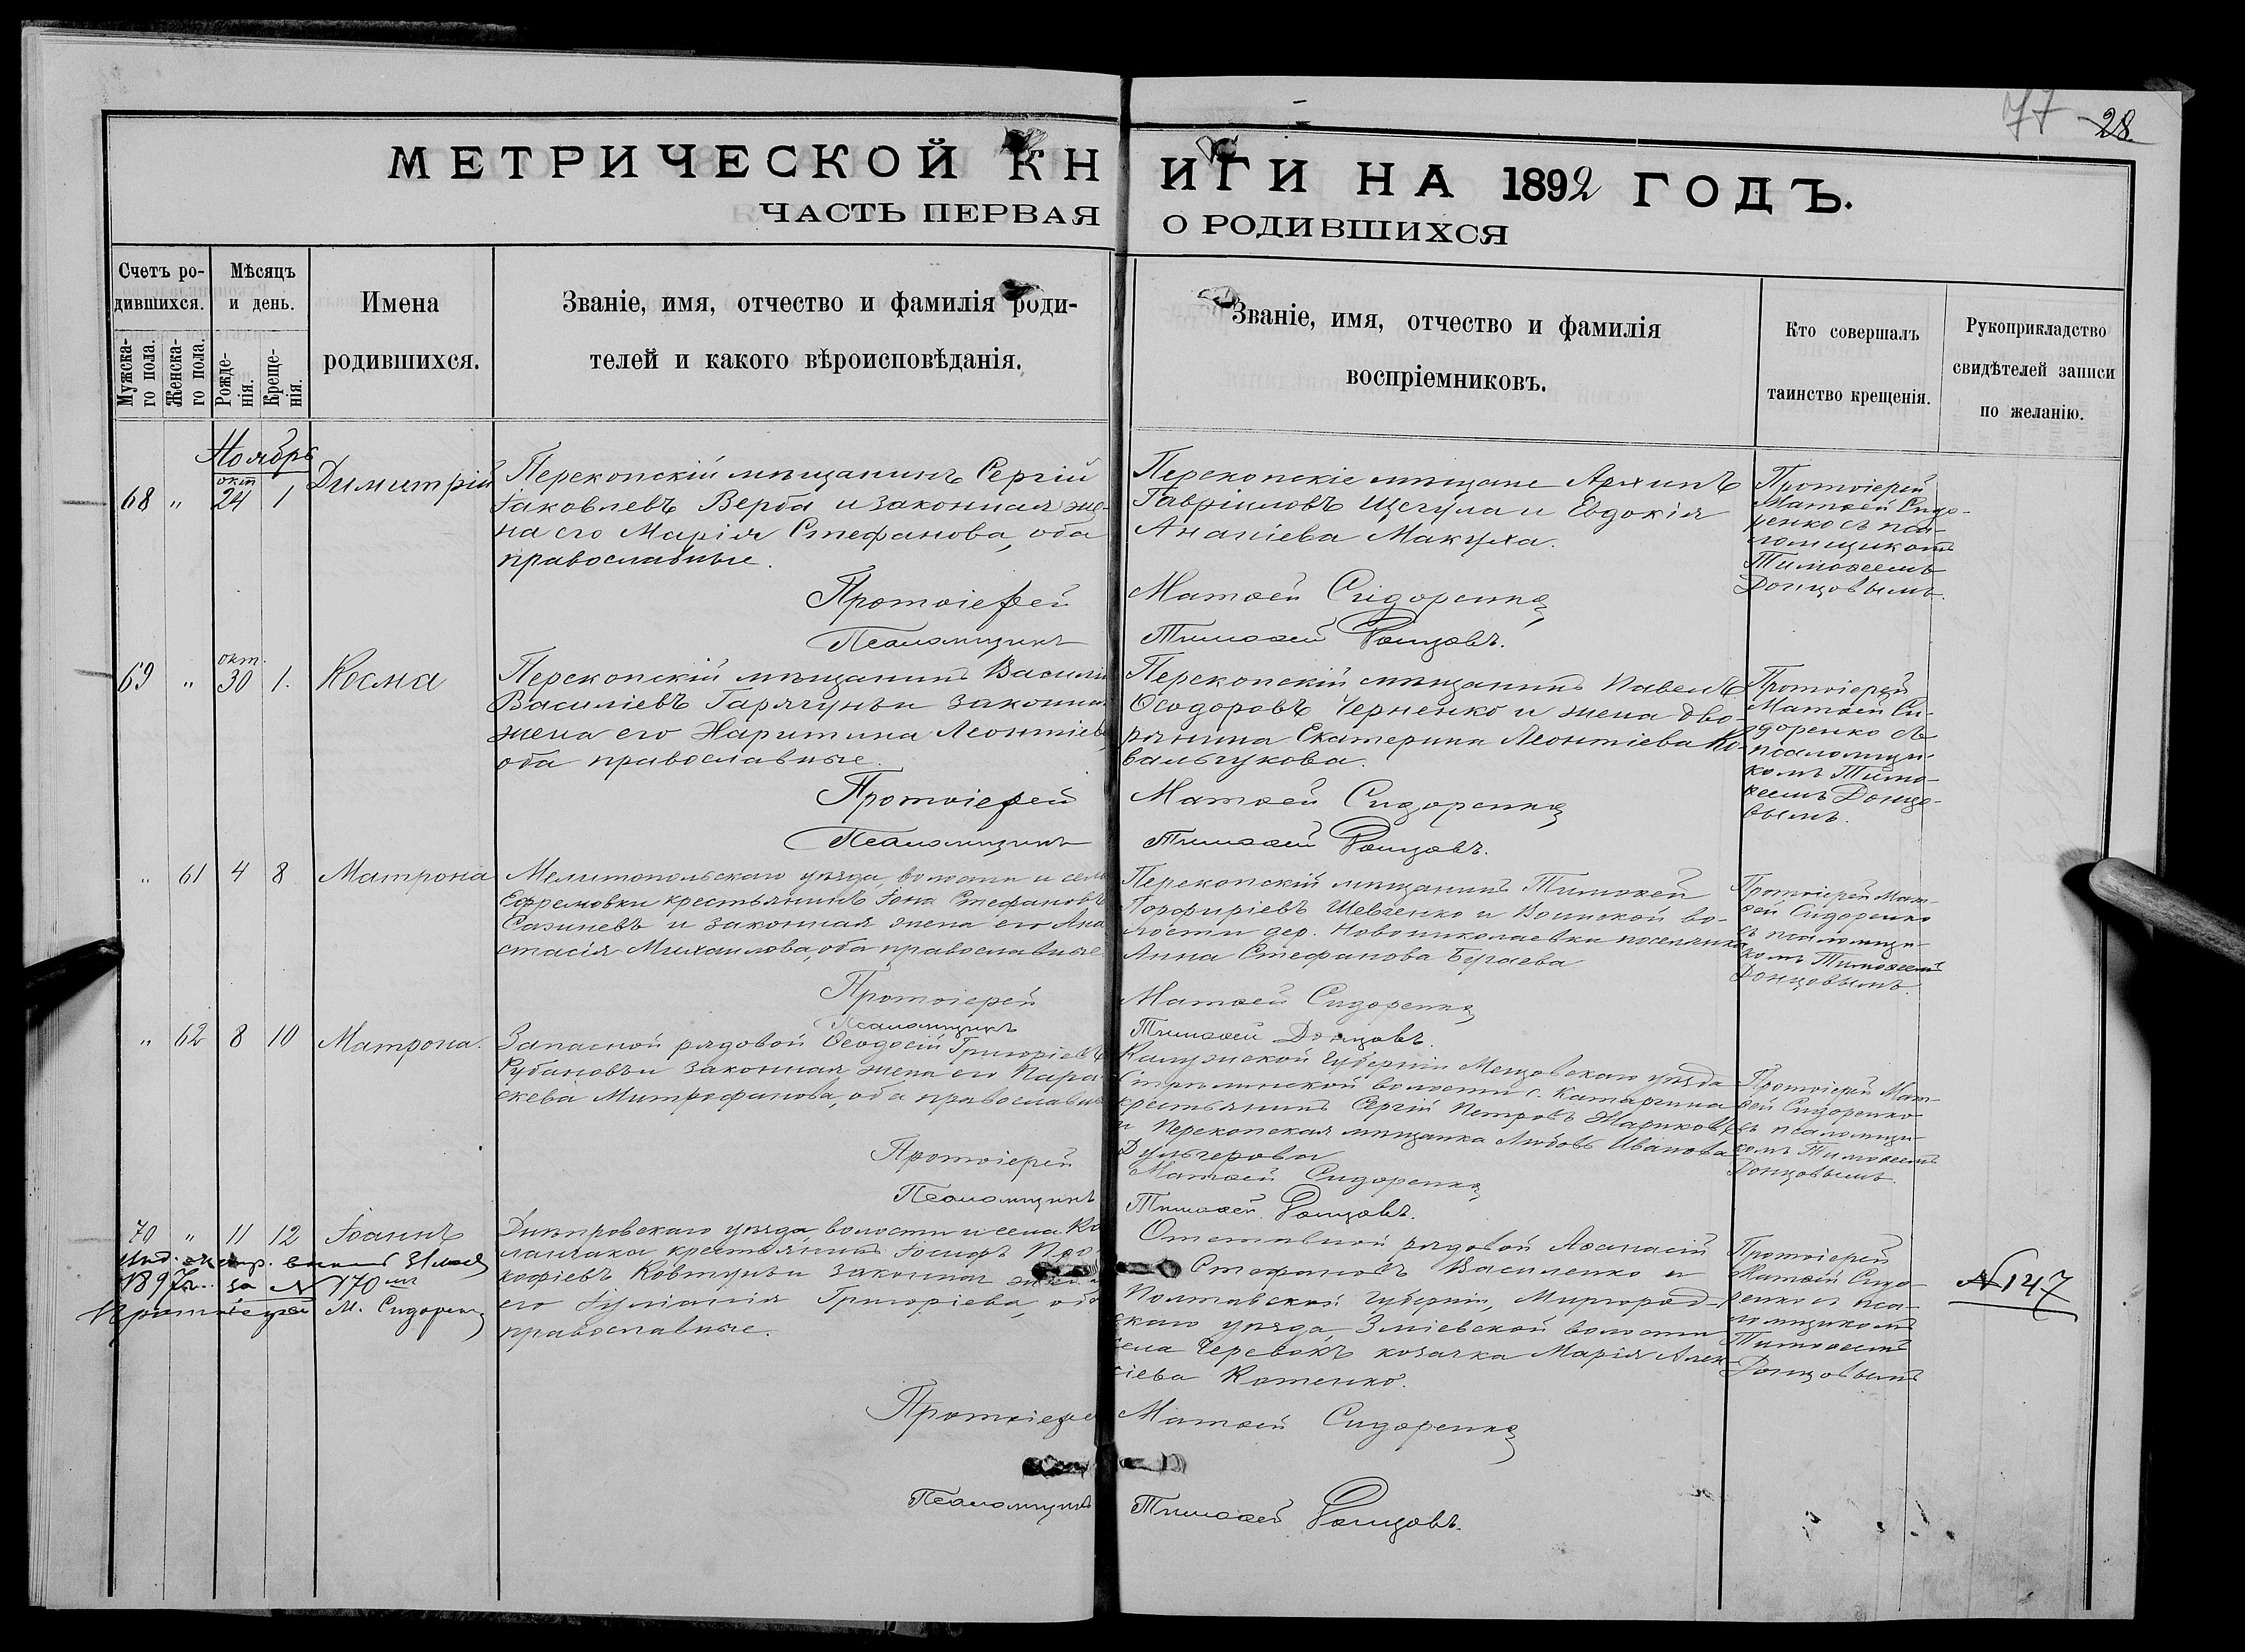 77 28
МЕТРИЧЕСКОЙ КНИГИ НА 1892 ГОДЪ.
ЧАСТЬ ПЕРВАЯ О РОДИВШИХСЯ
Счетъ ро-
дившихся.
Мужска-
го пола.
Женска-
го пола.
Мѣсяцъ
и день.
Рожде-
нія.
Креще-
нія.
Имена
родившихся.
Званіе, имя, отчество и фамилія роди-
телей и какого вѣроисповѣданія.
Званіе, имя, отчество и фамилія
воспріемниковъ.
Кто совершалъ
таинство крещенія.
Рукоприкладство
свидѣтелей записи
по желанію.
Ноябрь
68 " окт 24 1 Димитрій
Перекопскій мѣщанинъ Сергій
Іаковлевъ Верба и законная же-
на его Марія Стефанова, оба
православные.
Перекопскіе мѣщане Архипъ
Гавріиловъ Щегула и Евдокія
Ананіева Макуха.
Протоіерей
Матѳей Сидо-
ренко съ пса-
ломщикомъ
Тимоѳеемъ
Донцовымъ.
Протоіерей Матѳей Сидоренко
Псаломщикъ Тимоѳей Донцовъ.
69 " окт. 30 1. Косма
Перекопскій мѣщанинъ Василій
Василіевъ Гарягунъ и законная
жена его Харитина Леонтіева
оба православные.
Перекопскій мѣщанинъ Павелъ
Ѳеодоровъ Черненко и жена дво-
рянина Екатерина Леонтіева Ко-
вальчукова.
Протоіерей
Матѳей Си-
доренко съ
псаломщи-
комъ Тимо-
ѳеемъ Донцо-
вымъ.
Протоіерей Матѳей Сидоренко
Псаломщикъ Тимоѳей Донцовъ.
" 61 4 8 Матрона
Мелитопольскаго уѣзда, волости и села
Ефремовки крестьянинъ Іона Стефановъ
и законная жена его Ана
стасія Михаилова, оба православные
Перекопскій мѣщанинъ Тимоѳей
Порфиріевъ Шевченко и Воинской во-
лости дер. Новониколаевки поселянка
Анна Стефанова
Протоіерей Мат-
ѳей Сидоренко
съ псаломщи-
комъ Тимоѳеемъ
Донцовымъ.
Протоіерей Матѳей Сидоренко
Псаломщикъ Тимоѳей Донцовъ.
" 62 8 10 Матрона.
Запасной рядовой Ѳеодосій Григоріевъ
Рубановъ и законная жена его Пара
скева Митрофанова, оба православные
Калужской губерніи Мещовскаго уѣзда
волости с. Катаргина
крестьянинъ Сергій Петровъ Жариковъ
и Перекопская мѣщанка Любовь Иванова
Дульгерова
Протоіерей Мат-
ѳей Сидоренко
съ псаломщи-
комъ Тимоѳеемъ
Донцовымъ.
Протоіерей Матѳей Сидоренко
Псаломщикъ Тимоѳей Донцовъ.
70 " 11 12 Іоаннъ
189 г. за № 170
Протоіерей М. Сидоренко
Днѣпровскаго уѣзда волости и села Ка
ланчака крестьянинъ Іосифъ Про
кофіевъ Ковтунъ и законная жена
его Іуліанія Григоріева, оба
православные.
Отставной рядовой Аѳанасій
Стефановъ Василенко и
Полтавской губерніи, Миргород-
скаго уѣзда, Зміевской волости
села Черевокъ козачка Марія Алек-
сіева Котенко.
Протоіерей
Матѳей Сидо-
ренко съ пса-
ломщикомъ
Тимоѳеемъ
Донцовымъ
№ 147
Протоіерей Матѳей Сидоренко
Псаломщикъ Тимоѳей Донцовъ.